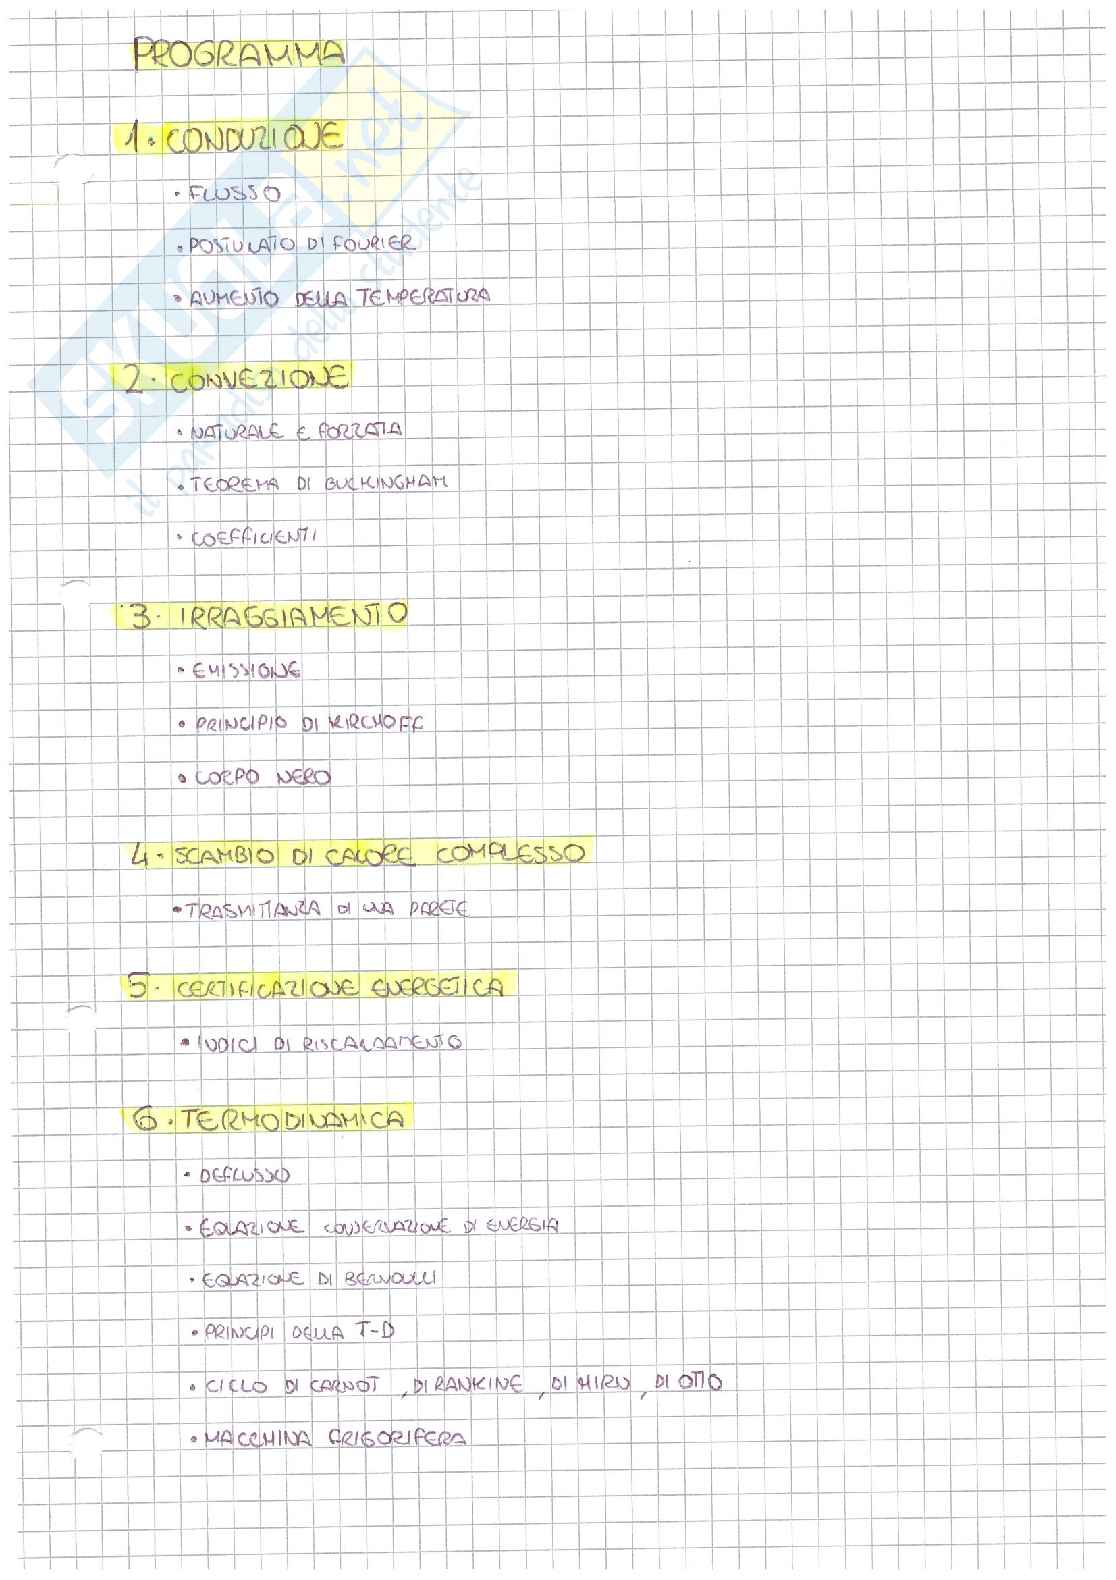 PROGRAMMA
1. CONDUZIONE
• FLUSSO
• POSTULATO DI FOURIER
• AUMENTO DELLA TEMPERATURA
2. CONVEZIONE
• NATURALE E FORZATA
• TEOREMA DI BUCKINGHAM
• COEFFICIENTI
3. IRRAGGIAMENTO
• EMISSIONE
• PRINCIPIO DI KIRCHOFF
• CORPO NERO
4. SCAMBIO DI CALORE COMPLESSO
• TRASMITTANZA DI UNA PARETE
5. CERTIFICAZIONE ENERGETICA
• INDICI DI RISCALDAMENTO
6. TERMODINAMICA
• DEFLUSSO
• EQUAZIONE CONSERVAZIONE DI ENERGIA
• EQUAZIONE DI BERNOULLI
• PRINCIPI DELLA T-D
• CICLO DI CARNOT, DI RANKINE, DI HIRN, DI OTTO
• MACCHINA FRIGORIFERA
SKUOLA.net
il paradiso dello studente